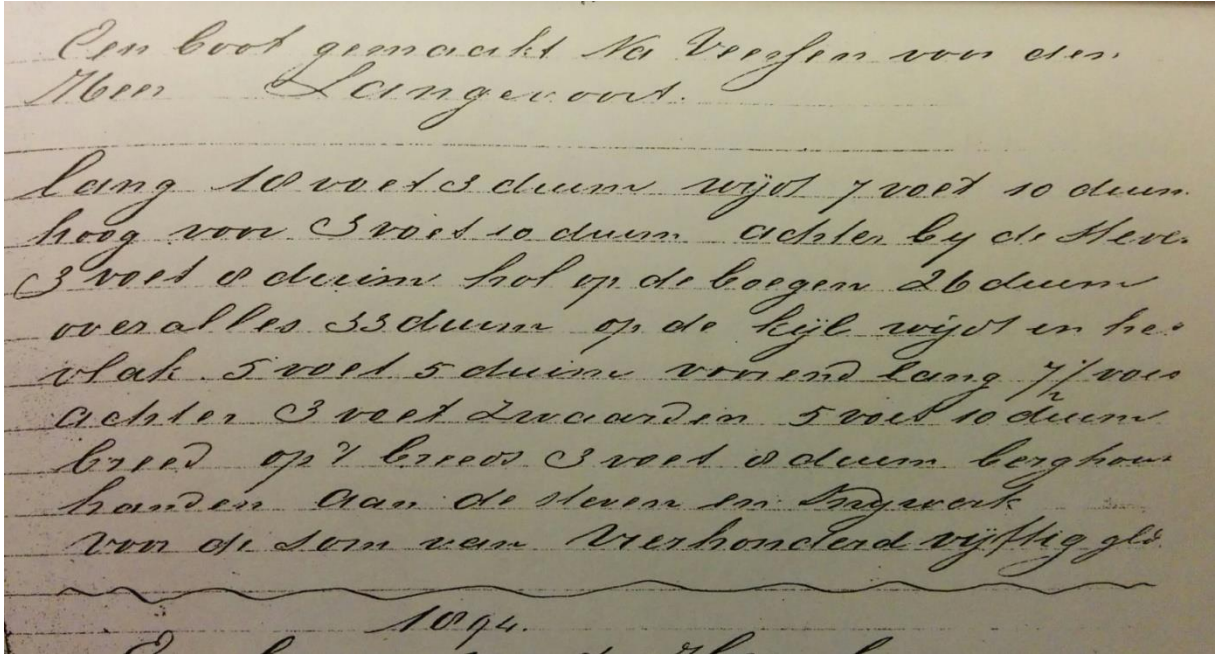 Een boot gemaakt Na Veessen voor den
Heer Langevoort.
lang 18 voet 3 duim wijdt 7 voet 10 duim
hoog voor 3 voet 10 duim achter by de steve
3 voet 8 duim hol op de boegen 26 duim
over alles 33 duim op de kijl wijdt in he
vlak 5 voet 5 duim voorend lang 7 1/2 voet
achter 3 voet Zwaarden 5 voet 10 duim
breed op 't breeds 3 voet 8 duim berghou
handen aan de steven en Snywerk
voor de som van Vierhonderd vijftig gld
1894.